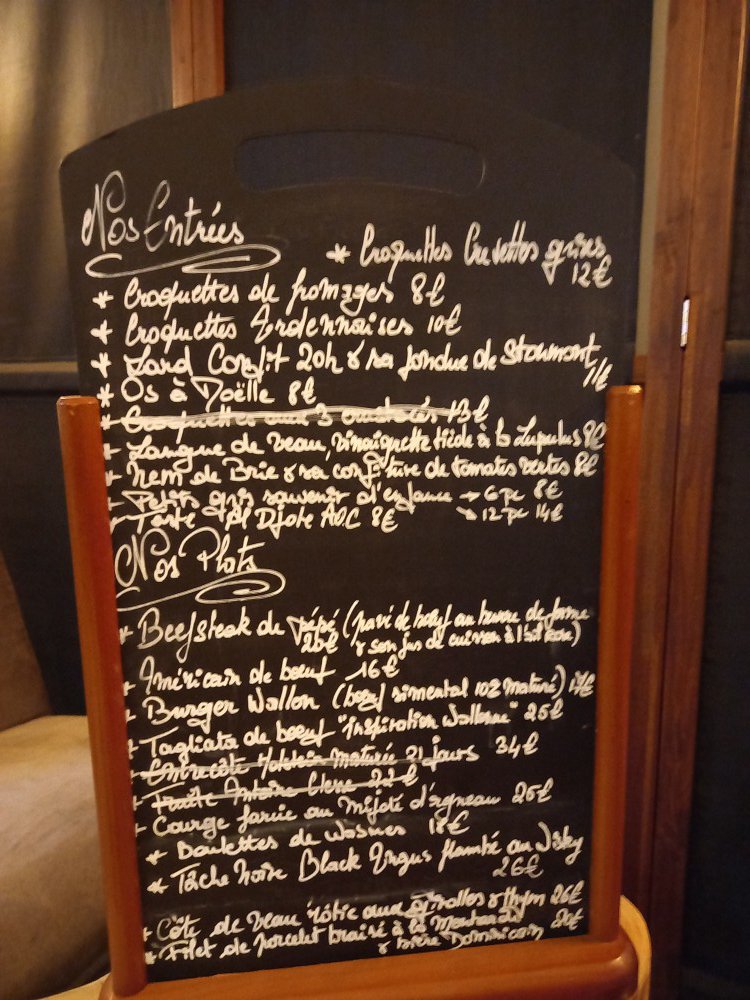 Nos Entrées
* Croquettes Crevettes grises
12€
* Croquettes de fromages 8€
* Croquettes Ardennaises 10€
* Lard Confit 20h & sa fondue de Stoumont
11€
* Os à Moëlle 8€
* Croquettes aux 3 crustacés 13€
* Langue de veau, vinaigrette tiède à la Lupulus 8€
* Nem de Brie & sa confiture de tomates vertes 8€
* Petits gris souvenir d'enfance → 6 pc 8€
↘ 12 pc 14€
* Tarte Al Djote AOC 8€
Nos Plats
* Beefsteak du pépé (pavé de bœuf au beurre de ferme
& son jus de cuisson à l'
20€
* Américain de bœuf 16€
* Burger Wallon (bœuf simental 102 maturé) 17€
* Tagliata de bœuf "Inspiration Wallonne" 25€
* Entrecôte Holstein maturée 21 jours 34€
* Truite Antoine Clerx 22€
* Courge farcie au mijoté d'agneau 25€
* Boulettes de Wasmes 18€
* Tâche Noire Black Angus flambé au
26€
* Côte de veau rôtie aux girolles & thym 26€
* Filet de porcelet braisé à la Moutarde
& bière Dominicain 20€